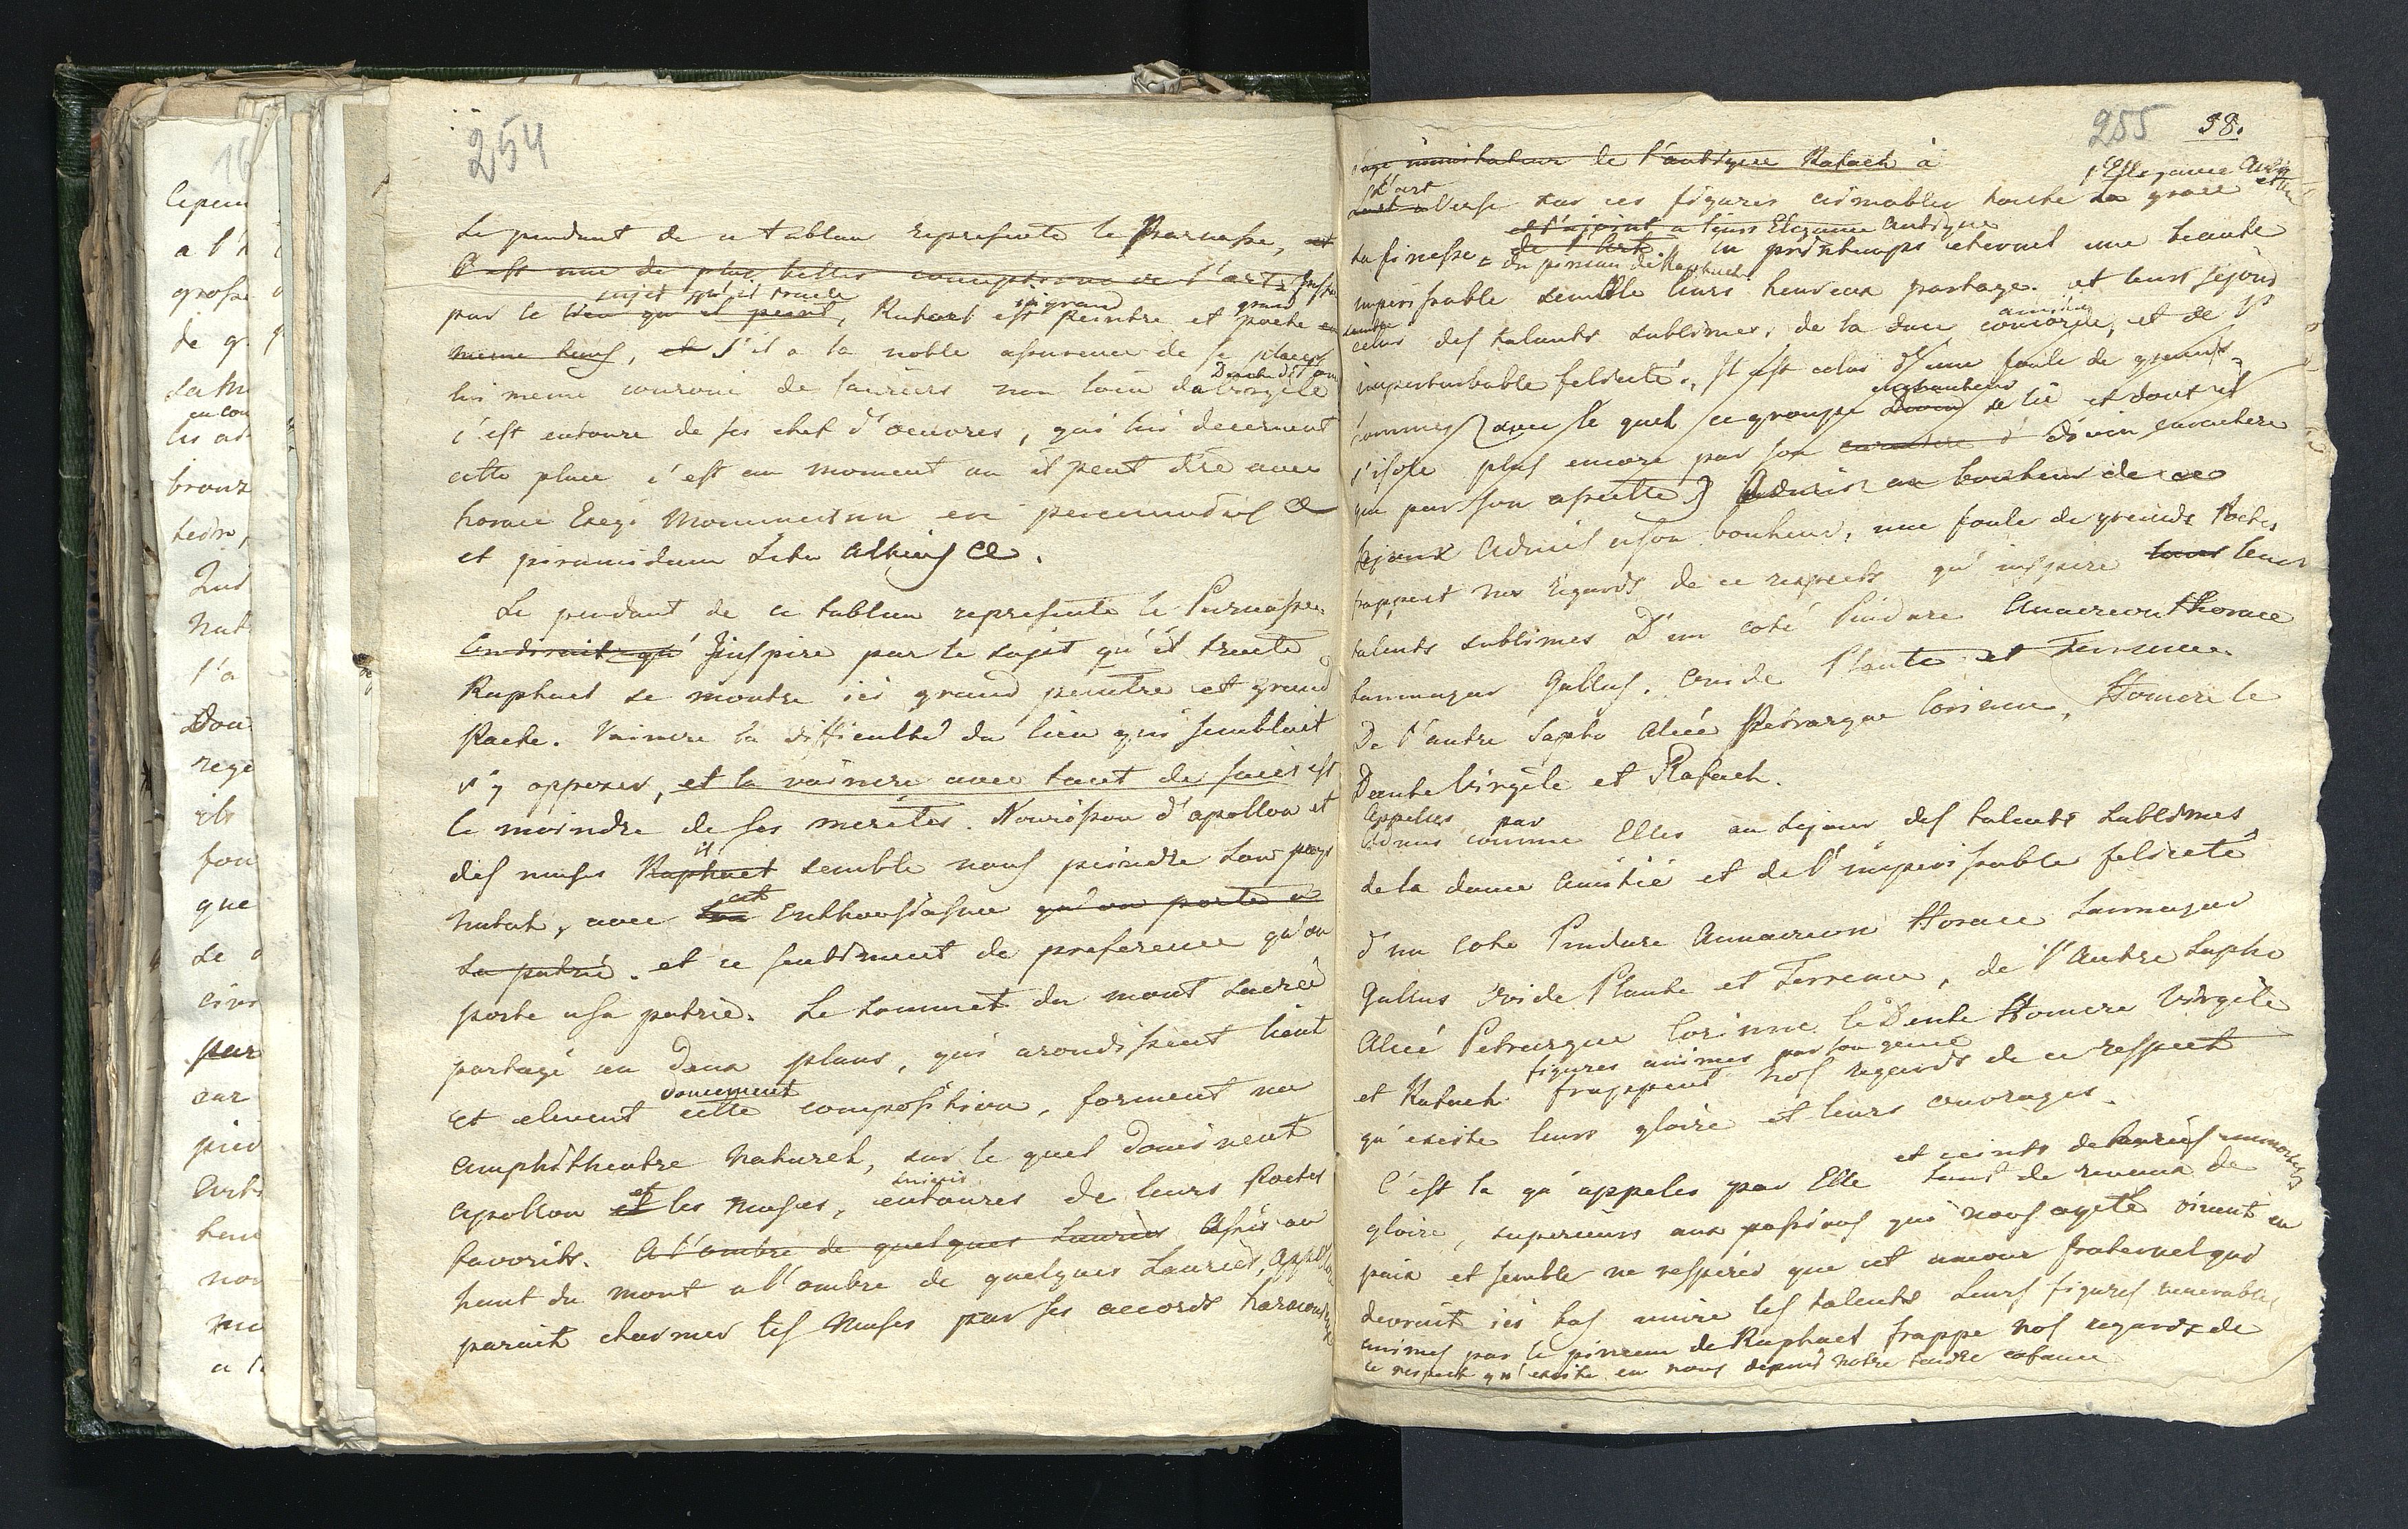 254
Le pendant de ce tableau represente le Parnasse, et
C'est une de plus belles conceptions de l'art. Inspiré
sujet qu'il traite
par le lieu qui il peint, Rafael est si grand peintre et grand poete en
meme tems, et s'il a la noble assurence de se placer
Dante d'Homere
lui meme couroné de lauriers non loin de Virgile
c'est entoure de ses chef d'oeuvres, qui lui decernent
cette place c'est au moment ou il peut dire avec
horace Exegi Monumentum ere perennius &
et piramidum situ altius &.
Le pendant de ce tableau represente le Parnasse.
L'endroit qu' Inspire par le sujet qu'il traite
Raphael se montre ici grand peintre et grand
Poete. Vaincre la difficulté du lieu qui semblait
s'y opposer, et la vaincre avec tant de succes est
le moindre de ses merites. Nourisson d'apollon et
des muses Raphael il semble nous peindre son pays
natal, avec son cet Enthousiasme qu'on porte a
sa patrie. et ce sentiment de preference qu'on
porte a sa patrie. Le sommet du mont sacré
partagé en deux plans, qui arondissent lient
doucement
et elevent cette composition, forment un
amphitheatre naturel, sur le quel dominent
apollon et les muses, suivis entoures de leurs Poetes
favorits. A l'ombre de quelques Lauriers Assis au
haut du mont a l'ombre de quelques Lauriers, Appollon
parait charmer les Muses par ses accords harmonieux
255 58.
sage immitateur de l'antique Rafael à
l'Elegance Antique
L'art
Verse sur ces figures aimables toute la grace et
et s'ajoint a leurs Elegance Antique
la finesse de l'Art. un printemps eternel une beauté
du pinceau de Raphael
imperissable semble leurs heureux partage. et leurs sejour
semble amitie
celui des talents sublimes, de la douce concorde, et de l'
imperturbable felicité. Il est celui d'une foule de grands
hommes avec le quel ce groupe divin enchanteur se lie et dont il
s'isole plus encore par son caractere d' divin caractere
que par son assiette] Admis au bonheur de ce
sejour Admis a son bonheur, une foule de grands Poetes
frappent nos regards de ce respects qu'inspire tous leurs
talents sublimes D'un coté Pindare Anacreon Horace
Sannazar Gallus, Ovide Plaute et Terrence.
De l'autre Sapho Alcée Petrarque Corinne, Homere le
Dante Virgile et Rafael.
Appelles par
Admis comme Elles au sejour des talents sublimes
de la douce amitié et de l'imperissable felicité
d'un Coté Pindare Annacreon Horace Sannazar
Gallus Ovide Plaute et Terrence, de l'Autre Sapho
Alcée Petrarque Corinne le Dente Homere Virgile
figures animes par son genie
et Rafael frappent nos regards de ce respect
qu'excite leurs gloire et leurs ouvrages.
et ceints de lauriers immortels
C'est la qu'appeles par Elle tant de rivaux de
gloire, superieurs aux passions qui nous agite vivent en
paix et semble ne respirer que cet amour fraternel qui
devrait ici bas unire les talents Leurs figures venerables
animes par le pinceau de Raphael frappe nos regards de
ce respect qu'existe en nous depuis notre tendre enfance